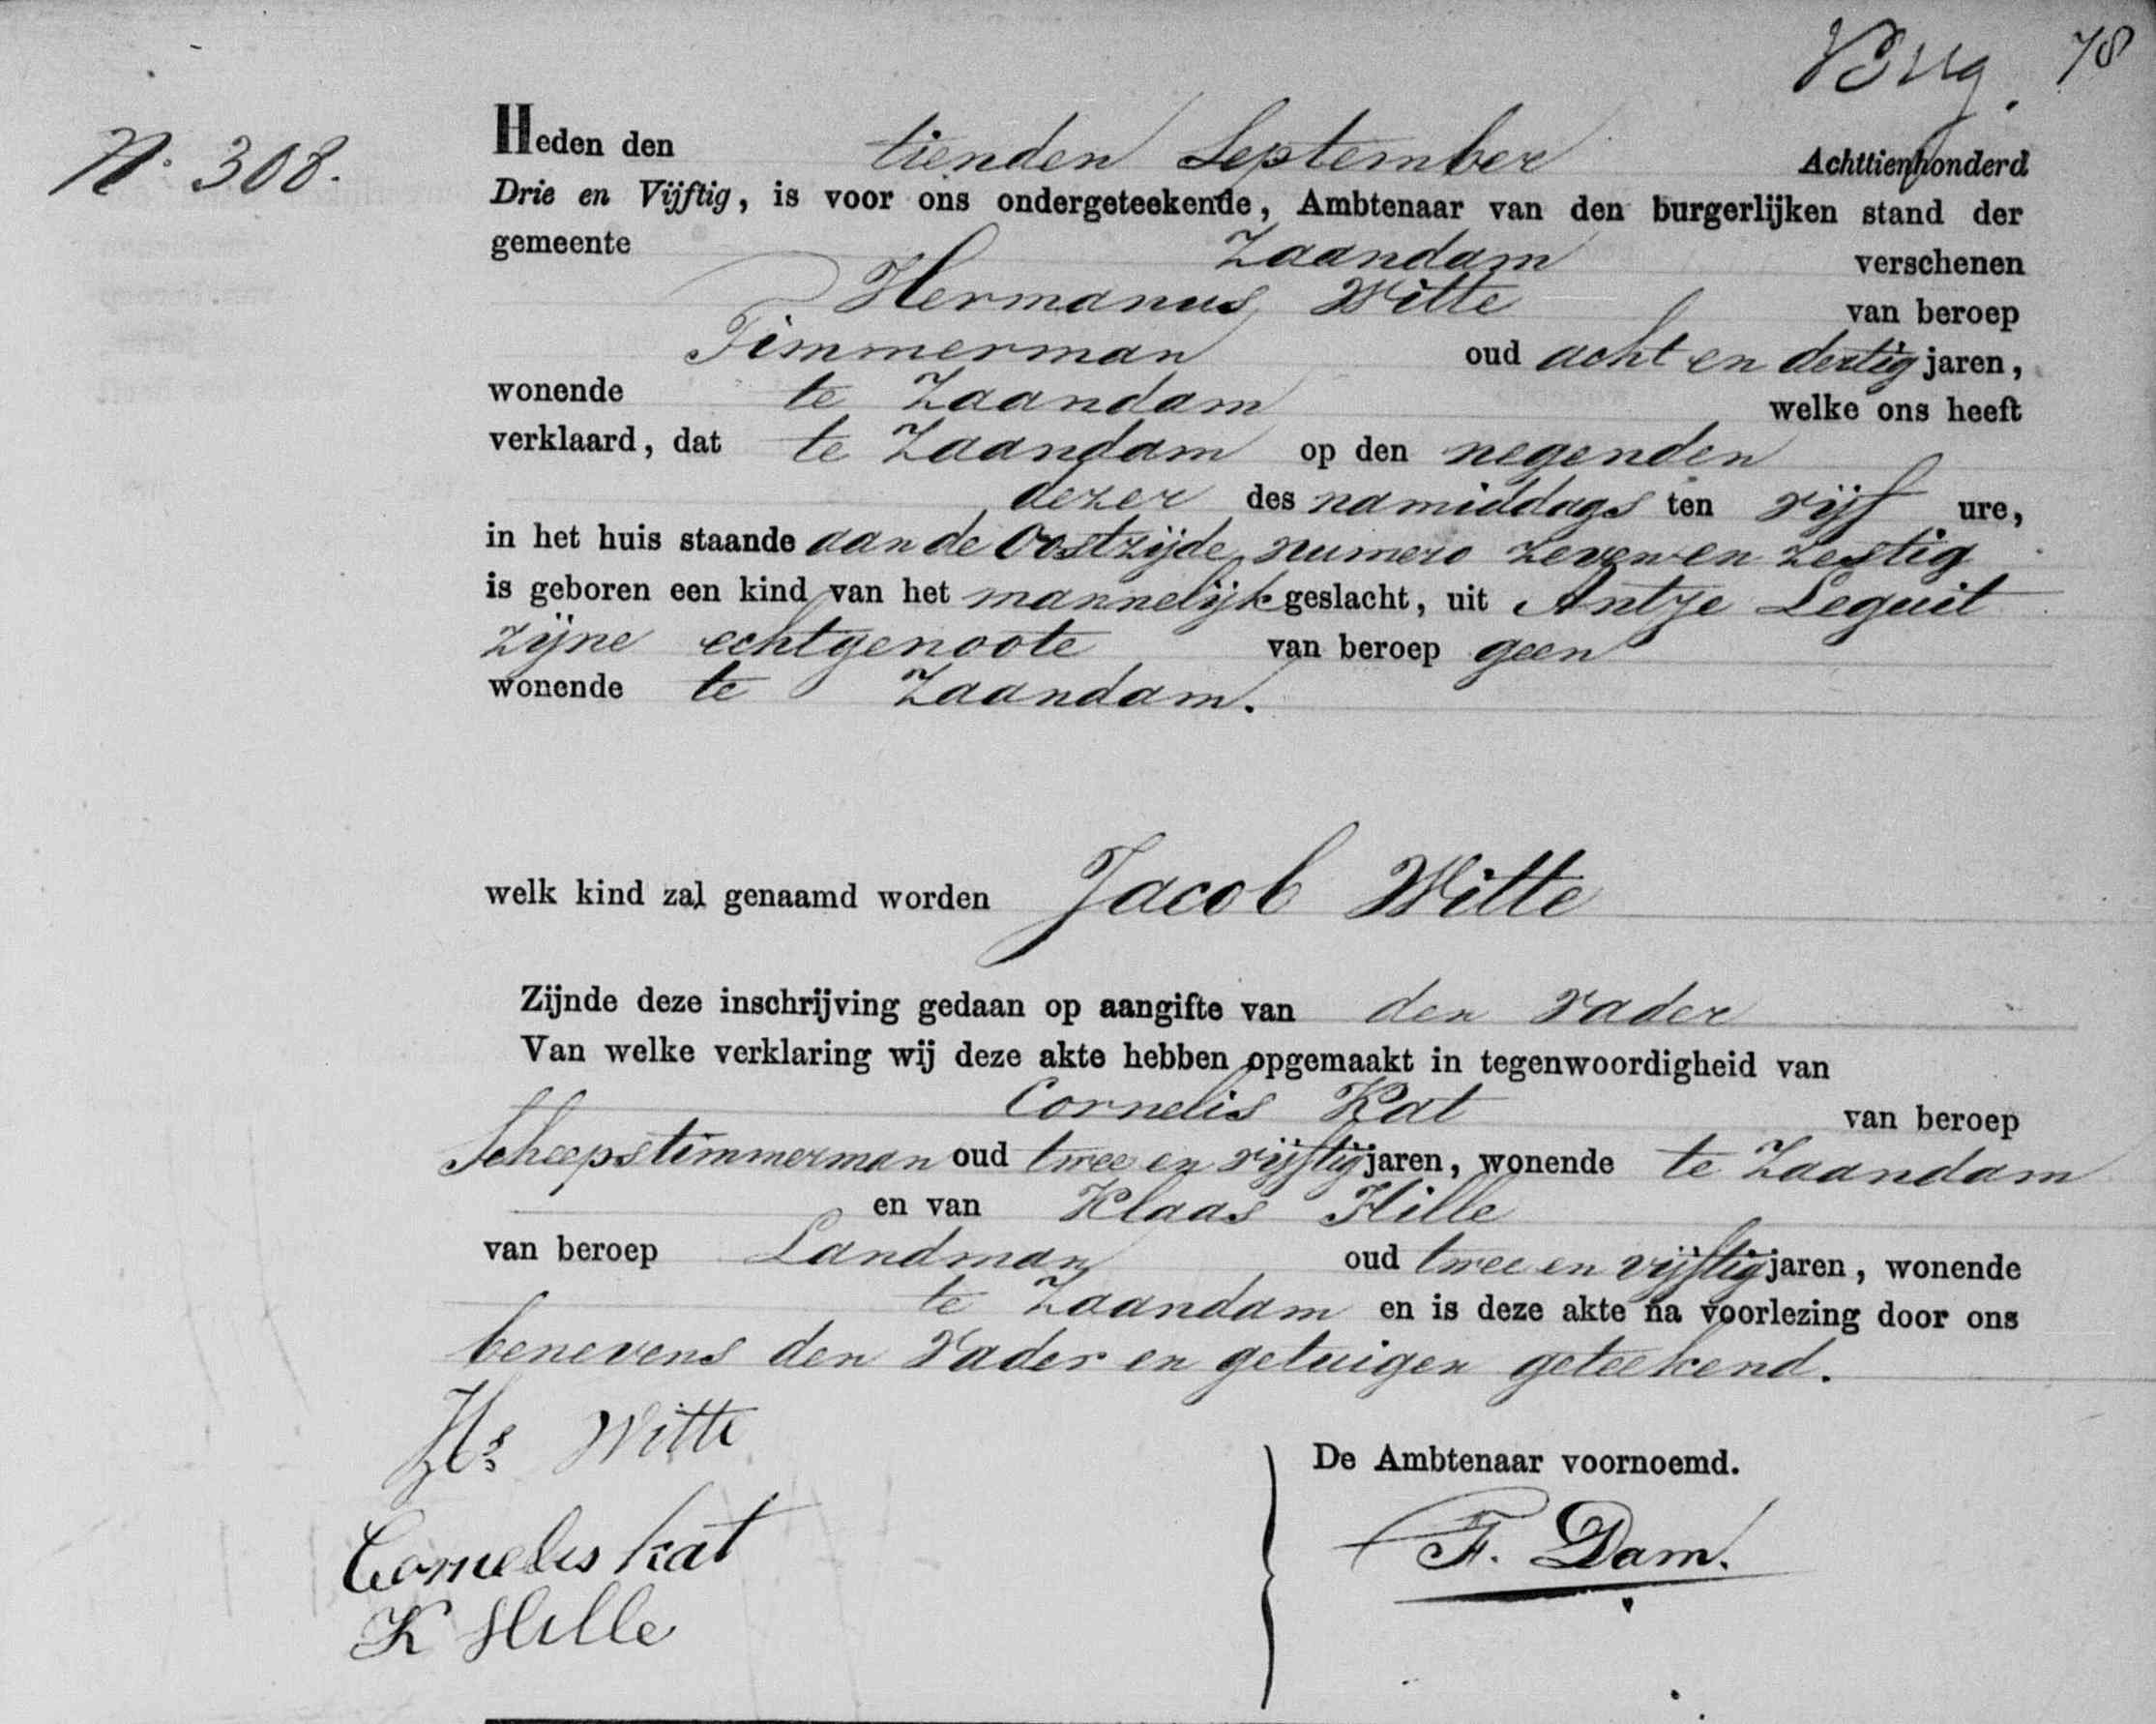 78
N. 308.
Heden den tienden September Achttienhonderd
Drie en Vijftig, is voor ons ondergeteekende, Ambtenaar van den burgerlijken stand der
gemeente Zaandam verschenen
Hermanus Witte van beroep
Timmerman oud acht en dertig jaren,
wonende te Zaandam welke ons heeft
verklaard, dat te Zaandam op den negenden
dezer des namiddags ten vijf ure,
in het huis staande aan de Oostzijde, numero zeven en zestig
is geboren een kind van het mannelijk geslacht, uit Antje Leguit
zijne echtgenoote van beroep geen
wonende te Zaandam.
welk kind zal genaamd worden Jacob Witte
Zijnde deze inschrijving gedaan op aangifte van den vader
Van welke verklaring wij deze akte hebben opgemaakt in tegenwoordigheid van
Cornelis Kat van beroep
Scheepstimmerman oud twee en vijftig jaren, wonende te Zaandam
en van Klaas Hille
van beroep Landman oud twee en vijftig jaren, wonende
te Zaandam en is deze akte na voorlezing door ons
benevens den vader en getuigen geteekend.
Hs Witte
De Ambtenaar voornoemd.
Cornelis Kat
F. Dam.
K Hille